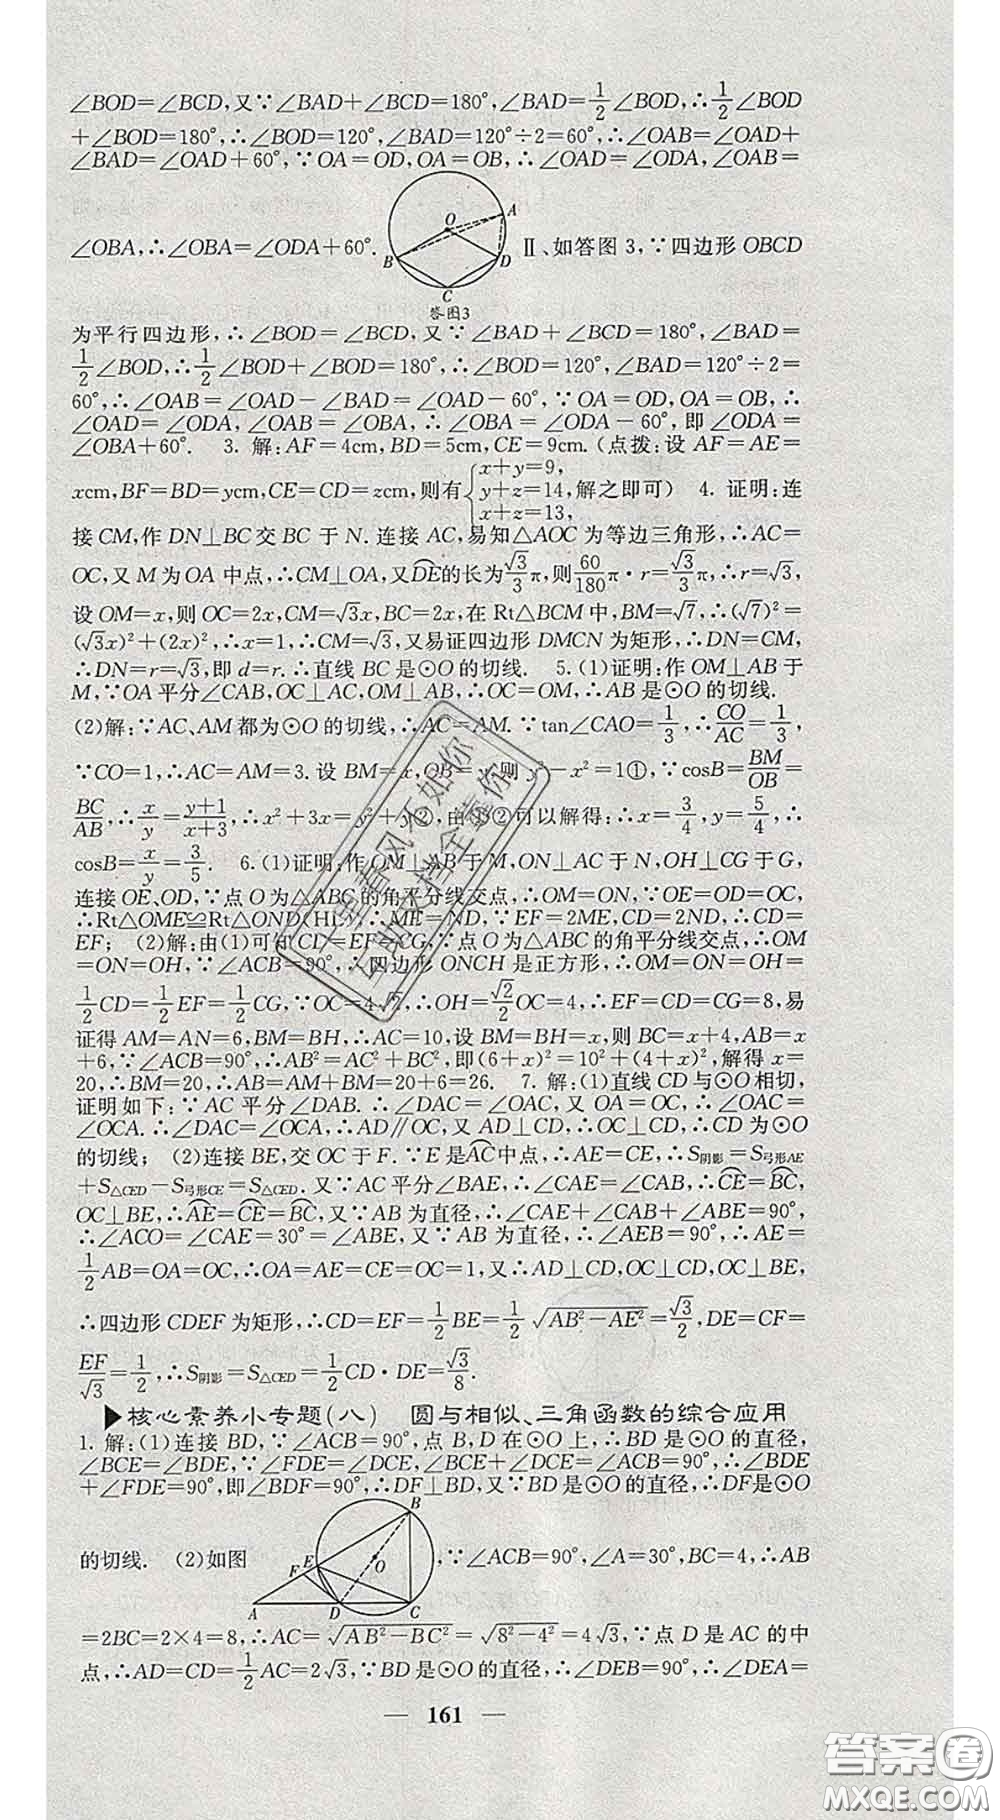 ∠BOD=∠BCD,又∵∠BAD+∠BCD=180°,∠BAD=1/2∠BOD,∴1/2∠BOD
+∠BOD=180°,∴∠BOD=120°,∠BAD=120°÷2=60°,∴∠OAB=∠OAD+
∠BAD=∠OAD+60°,∵OA=OD,OA=OB,∴∠OAD=∠ODA,∠OAB=
∠OBA,∴∠OBA=∠ODA+60°.
O A B D C
答图3
Ⅱ、如答图3,∵四边形OBCD
为平行四边形,∴∠BOD=∠BCD,又∵∠BAD+∠BCD=180°,∠BAD=
1/2∠BOD,∴1/2∠BOD+∠BOD=180°,∴∠BOD=120°,∠BAD=120°÷2=
60°,∴∠OAB=∠OAD-∠BAD=∠OAD-60°,∵OA=OD,OA=OB,∴
∠OAD=∠ODA,∠OAB=∠OBA,∴∠OBA=∠ODA-60°,即∠ODA=
∠OBA+60°. 3. 解:AF=4cm,BD=5cm,CE=9cm.(点拨:设AF=AE=
xcm,BF=BD=ycm,CE=CD=zcm,则有{x+y=9, y+z=14, x+z=13, 解之即可) 4. 证明:连
接CM,作DN⊥BC交BC于N.连接AC,易知△AOC为等边三角形,∴AC=
OC,又M为OA中点,∴CM⊥OA,又DE⌒的长为√3/3π,则60/180π·r=√3/3π,∴r=√3,
设OM=x,则OC=2x,CM=√3x,BC=2x,在Rt△BCM中,BM=√7,∴(√7)²=
(√3x)²+(2x)²,∴x=1,∴CM=√3,又易证四边形DMCN为矩形,∴DN=CM,
∴DN=r=√3,即d=r.∴直线BC是⊙O的切线. 5.(1)证明:作OM⊥AB于
M,∵OA平分∠CAB,OC⊥AC,OM⊥AB,∴OC=OM,∴AB是⊙O的切线.
(2)解:∵AC、AM都为⊙O的切线,∴AC=AM.∵tan∠CAO=1/3,∴CO/AC=1/3,
∵CO=1,∴AC=AM=3.设BM=x,OB=y,则y²-x²=1①,∵cosB=BM/OB=
BC/AB,∴x/y=(y+1)/(x+3),∴x²+3x=y²+y②,由①②可以解得:∴x=3/4,y=5/4,∴
cosB=x/y=3/5. 6.(1)证明:作OM⊥AB于M,ON⊥AC于N,OH⊥CG于G,
连接OE、OD,∵点O为△ABC的角平分线交点,∴OM=ON,∵OE=OD=OC,
∴Rt△OME≌Rt△OND(HL),∴ME=ND,∵EF=2ME,CD=2ND,∴CD=
EF; (2)解:由(1)可知CD=EF=CG,∵点O为△ABC的角平分线交点,∴OM
=ON=OH,∵∠ACB=90°,∴四边形ONCH是正方形,∴OM=ON=OH=
1/2CD=1/2EF=1/2CG,∵OC=4√2,∴OH=√2/2OC=4,∴EF=CD=CG=8,易
证得AM=AN=6,BM=BH,∴AC=10,设BM=BH=x,则BC=x+4,AB=x
+6,∵∠ACB=90°,∴AB²=AC²+BC²,即(6+x)²=10²+(4+x)²,解得x=
20,∴BM=20,∴AB=AM+BM=20+6=26. 7. 解:(1)直线CD与⊙O相切,
证明如下:∵AC平分∠DAB.∴∠DAC=∠OAC,又OA=OC,∴∠OAC=
∠OCA.∴∠DAC=∠OCA,∴AD∥OC,又AD⊥CD,∴OC⊥CD,∴CD为⊙O
的切线; (2)连接BE,交OC于F.∵E是AC⌒中点,∴AE=CE,∴S阴影=S弓形AE
+S△CED-S弓形CE=S△CED.又∵AC平分∠BAE,∴∠CAE=∠CAB,∴CE⌒=BC⌒,
OC⊥BE,∴AE⌒=CE⌒=BC⌒,又∵AB为直径,∴∠CAE+∠CAB+∠ABE=90°,
∴∠ACO=∠CAE=30°=∠ABE,又∵AB为直径,∴∠AEB=90°,∴AE=
1/2AB=OA=OC,∴OA=AE=CE=OC=1,又∴AD⊥CD,OC⊥CD,OC⊥BE,
∴四边形CDEF为矩形,∴CD=EF=1/2BE=1/2√(AB²-AE²)=√3/2,DE=CF=
EF/√3=1/2,∴S阴影=S△CED=1/2CD·DE=√3/8.
▶核心素养小专题(八) 圆与相似、三角函数的综合应用
1. 解:(1)连接BD,∵∠ACB=90°,点B,D在⊙O上,∴BD是⊙O的直径,
∠BCE=∠BDE,∵∠FDE=∠DCE,∠BCE+∠DCE=∠ACB=90°,∴∠BDE
+∠FDE=90°,即∠BDF=90°,∴DF⊥BD,又∵BD是⊙O的直径,∴DF是⊙O
的切线. (2)如图
B E F O A D C
,∵∠ACB=90°,∠A=30°,BC=4,∴AB
=2BC=2×4=8,∴AC=√(AB²-BC²)=√(8²-4²)=4√3,∵点D是AC的中
点,∴AD=CD=1/2AC=2√3,∵BD是⊙O的直径,∴∠DEB=90°,∴∠DEA=
— 161 —
十里春风不如你
互助文档全靠你
答案圈
MXQE.COM